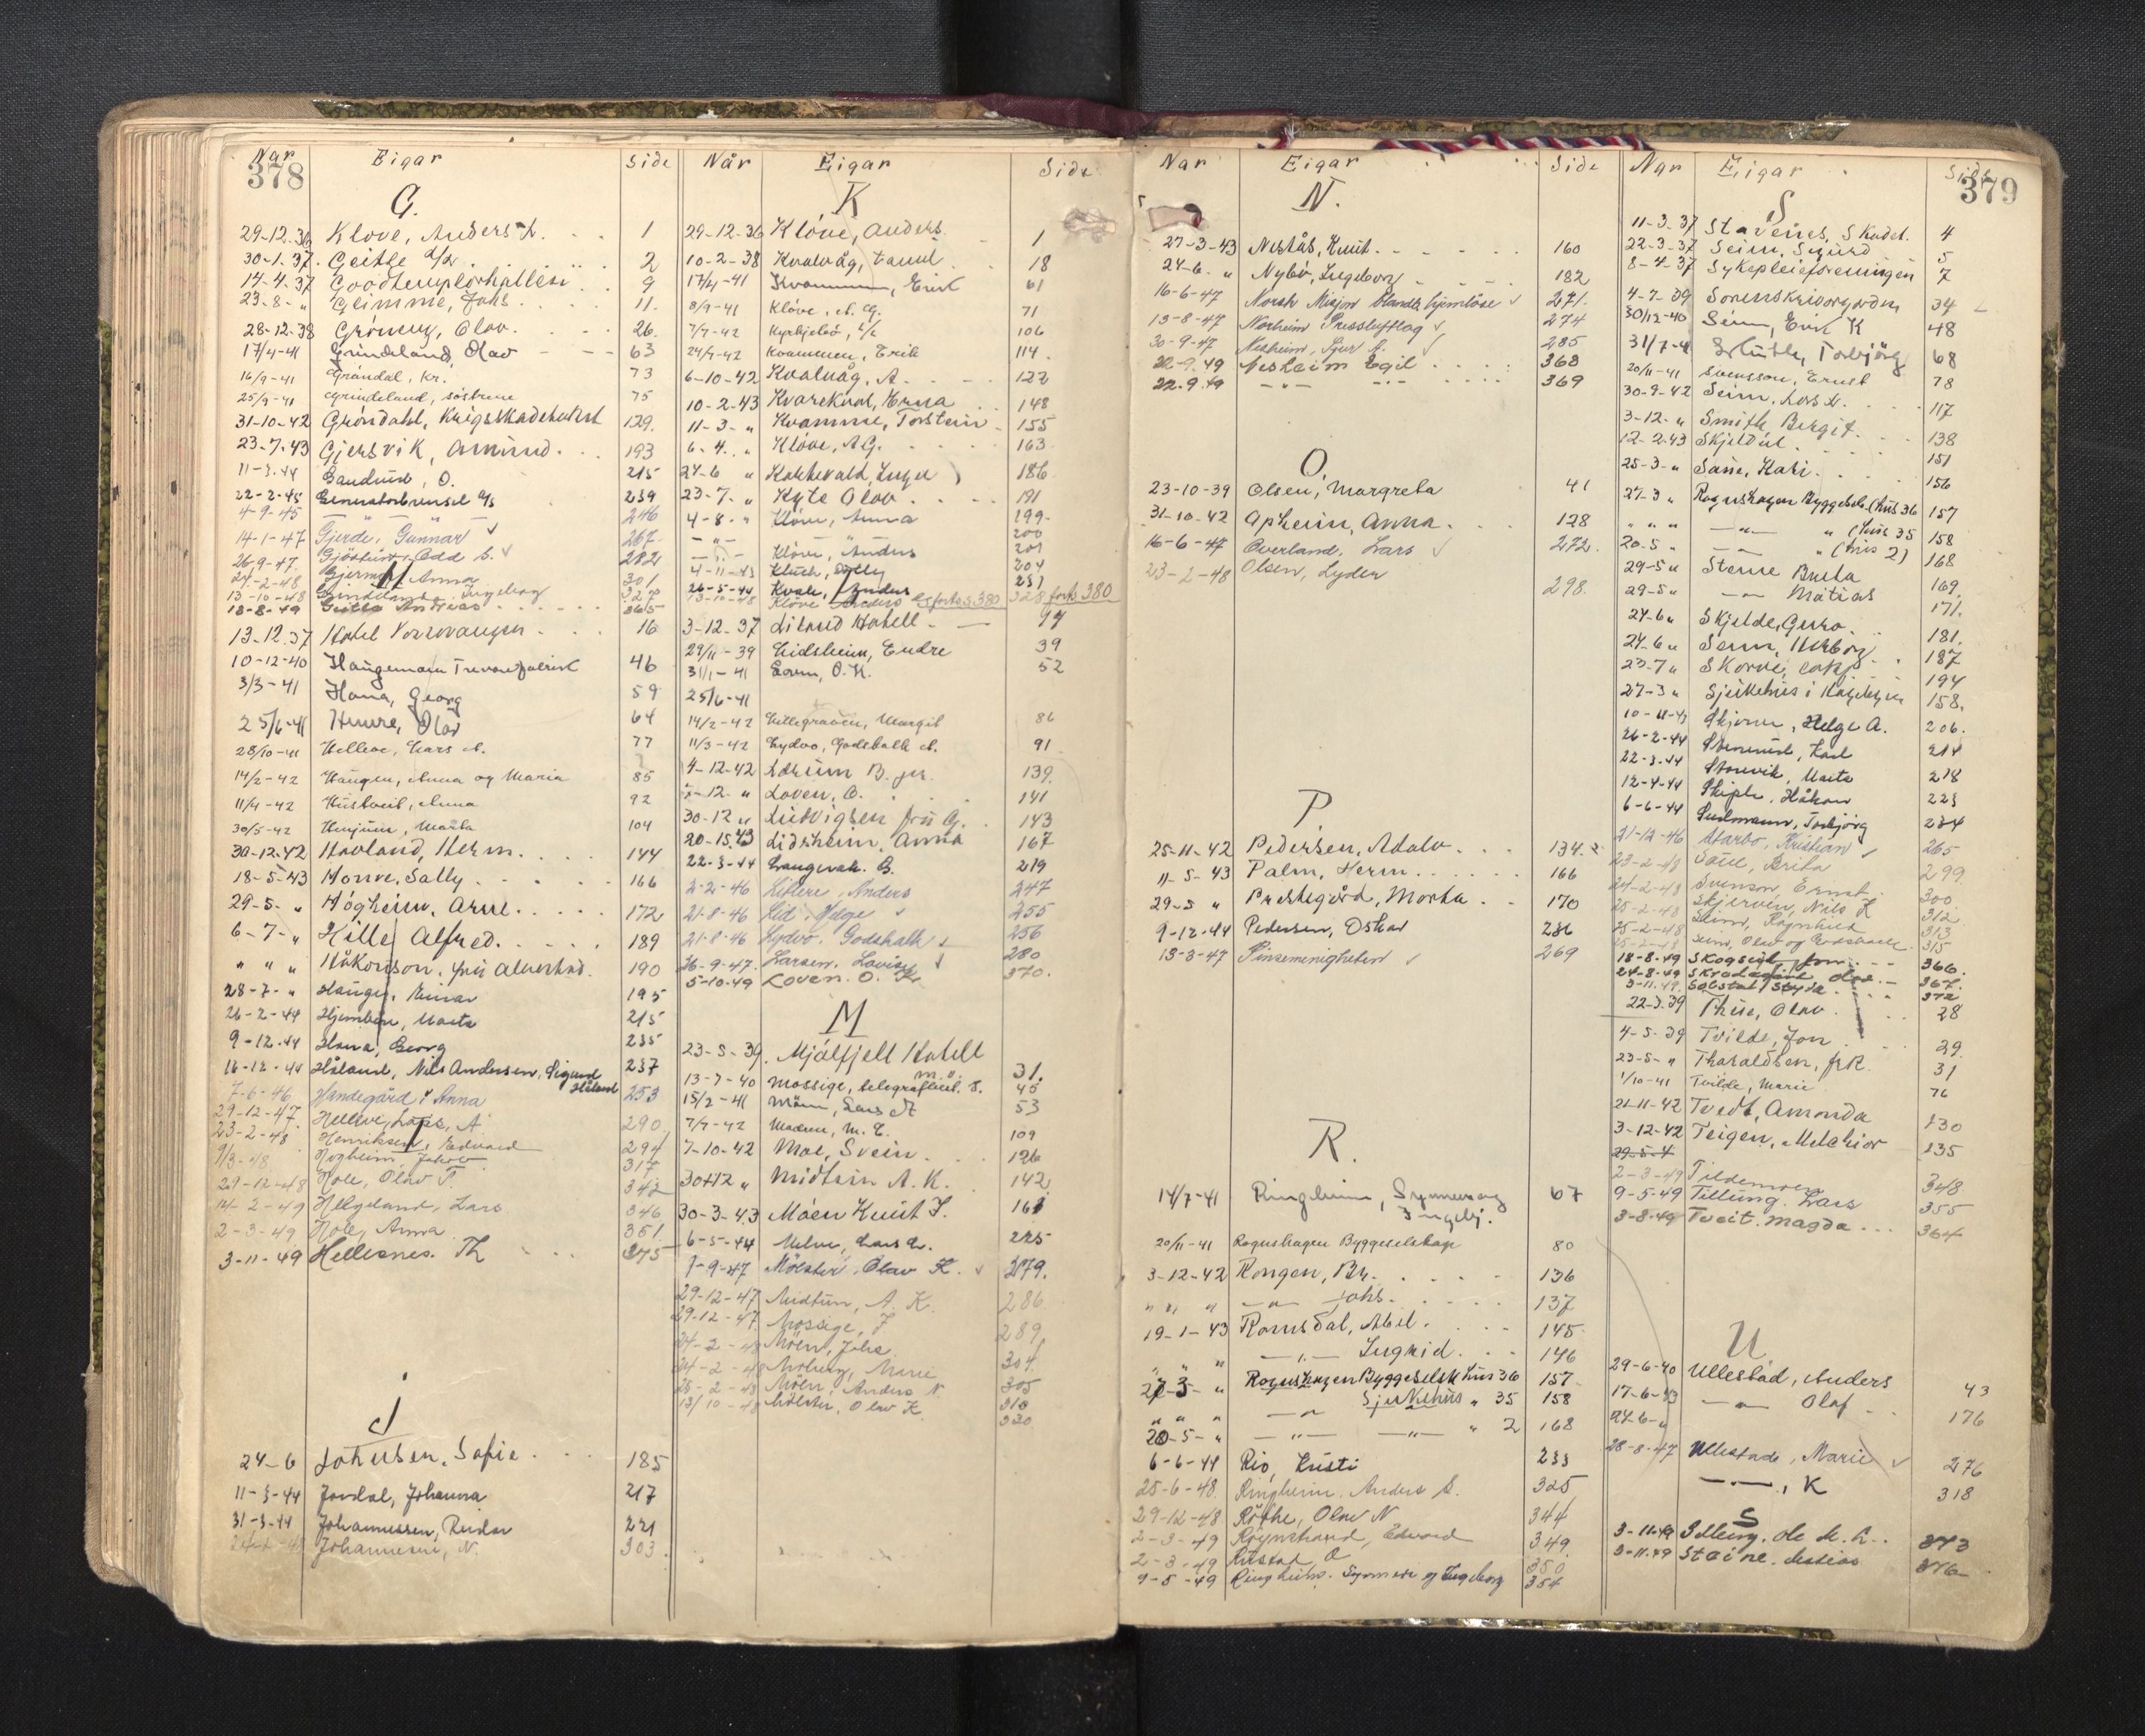 378
Nar Eigar Side
G.
29-12-36 Kløve, Anders L. 1
30-1-37 Geitle a/s 2
14-4-37 Goodtemplarhjallesi 9
23-8- " Glimme, Johs. 11.
28-12-38 Grøneng, Olav. 26.
17/4-41 Grindeland, Olav 63
16/9-41 Gröndal, Kr. 73
25/9-41 Grindeland, söstrene 75
31-10-42 Grøndahl, Krigsskadekontor 129.
23-7-43 Gjersvik, Amund. 193
11-3-44 O. 215
22-2-45 Generatorbrensel A/s 239
4-9-45 — " — " — 246
14-1-47 Gjerde, Gunnar √ 267
26-9-47. Odd S. √ 282
24-2-48 Anna 301
13-10-48 Ingeborg 327
18-8-49 Geitle Andreas 365
13-12-37 Hotel Vossevangen 16
10-12-40 Haugemoen Trevarefabrikk 46
3/3-41 Hana, Georg 59
25/6-41 Olav 64
28/10-41 Helleve, Lars A. 77
14/2-42 Haugen, Anna og Maria 85
11/4-42 Anna 92
30/5-42 Marta 104
30-12-42 Hovland, Herm. 144
18-5-43 Horve, Sally 166
29-5- " Høgheim, Arne. 172
6-7- " Hille Alfred. 189
" " " Håkonson, fru Alverhild. 190
28-7- " Haugen, Einar 195
26-2-44 Marta 215
9-12-44 Hana, Georg 235
16-12-44 Håland, Nils Andersen, Sigurd Håland 237
7-6-46 Handegård, Anna 253
29-12-47. Helleve, Lars, A. 290
23-2-48 Henriksen, Edvard 294
9/3-48 Høgheim, Jakob 317
29-12-48 Hole, Olav T. 342
14-2-49 Helgeland, Lars 346
2-3-49 Hole, Anna 351.
3-11-49 Hellesnes. Th 375
J
24-6 Johnsen, Sofie 185
11-3-44 Jordal, Johanna 217
31-3-44 Johannessen, Reidar 221
Johannesen, N. 303.
Når Eigar Side
K
29-12-36 Kløve, Anders. 1
10-2-38 Kvalvåg, Daniel 18
17/4-41 Erik 61
8/9-41 Kløve, A. G. 71
7/7-42 106
24/7-42 Kvammen, Erik 114.
6-10-42 Kvalvåg, A. 122
10-2-43 Kvarekval, Erna 148
11-3- " Kvamme, Torstein 155
6-4- " Kløve, A.G. 163
24-6 " Inga 186
23-7- " Kyte Olav 191
4-8- " Kløve, Anna 199.
— " — 200
— " — Kløve, Anders 201
4-11-43 204
26-5-44 Kvale, Anders 231
13-10-48 Kløve Anders forts s 380 328 forts 380
3-12-37 Liland Hotell 17
29/11-39 Lidsheim, Endre 39
31/1-41 O.K. 52
25/6-41
14/2-42 Lillegraven, Margit 86
11/3-42 Lydvo, Godskalk A. 91
4-12-42 B. jr. 139.
7-12- " Loven, O. 141
30-12 " Ludvigsen fru G. 143
20-1543 Lidsheim, Anna 167
22-3-44 B. 219
2-2-46 Anders 247
21-8-46 Lid, Helge √ 255
21-8-46 Lydvo, Godskalk √ 256
26-9-47. Larsen, Lovise √ 280
5-10-49 Loven. O. K 370.
M
23-5-39. Mjølfjell Hotell 31.
13-7-40 Mossige, telegrafbest. T. 45
15/2-41 Lars 53
7/7-42 M. E. 109
7-10-42 Moe, Svein 126
30-12 " Midtun A. K. 142
30-3-43 Møen Knut I. 161
6-5-44 Melve, Lars L. 225
1-9-47 Mølster, Olav K. √ 279.
29-12-47 Midtun, A. K. 286
29-12-47. Mossige, J 289.
24-2-48 Möen, Johs 304.
24-2-48 Moberg, Marie 305
25-2-48 Möen, Anders N. 310
13/10-48 Mölster, Olav K. 330
379
Nar Eigar Side
N.
27-3-43 Nestås, Knut. 160
24-6. " Nybø, Ingeborg 182
16-6-47 Norsk Misjon blandt hjemløse √ 271.
13-8-47 Norheim Pressluftlag √ 274
30-9-47 Nesheim, Sjur A. √ 285
22-9-49 Nesheim Egil 368
22.9.49 — " — 369
O.
23-10-39 Olsen, Margreta 41
31-10-42 Opheim, Anna. 128
16-6-47 Overland, Lars √ 272.
23-2-48 Olsen, Lyder 298.
P
25-11-42 Pedersen, Adolv. 134.
11-5-43 Palm, Herm. 166
29-5 " Prestegård, Marta. 170
9-12-44 Pedersen, Oskar 236
13-3-47 Pinsemenigheten √ 269
R.
14/7-41 Ringheim, Synneva og Ingebj. 67
20/11-41 Rognshagen Byggeselskap 80
3-12-42 Rongen, Br. 136
" " " — " — Johs. 137
19-1-43 Romsdal, Abel. 145
" " " — " — Ingrid. 146
27-3- " Rognshagen Byggeselsk hus 36 157
" " " — " — Sjukehus " 35 158
20-5- " — " — — " — " 2 168
6-6-44 Rio, Kristi 233
25-6-48. Ringheim. Anders S. 325
29-12-48 Röthe, Olav N 344
2-3-49 Edvard 349.
2-3-49 Rustad, O 350
9-5-49 Ringheim. Synneva og Ingeborg 354
Nar Eigar Side
S
11-3-37 Stavenes, Skodel. 4
22-3-37 Seim, Sigurd 5
8-4-37 Sykepleieforeningen 7
4-7-39 Sorenskrivargarden 34
30/12-40 Seim, Erik K 48
31/7-41 Torbjörg 68
20/11-41 Svensson, Ernst 78
30-9-42 Seim, Lars L. 117
3-12- " Smith Bergit. 138
12-2-43 Skjeldal. 151
25-3- " Sane, Kari. 156
27-3 " Rognshagen Byggesels. (hus 36 157
" " " — " — " (hus 35 158
20-5 " — " — " (hus 2) 168
29-5 " Steine Brita 169.
29-5 " — " — Matias 171.
24-6 " Skjelde, Gerho. 181.
24-6 " Seim, Herborg 187
23-7 " Skorve, 194
27-3 " Sjukehus i 158.
10-11-43 Skjerve, Helge A. 206.
26-2-44 Karl 214
22-3-44 Storvik, Marta 218
12-4-44 Skiple, Håkon 223
6-6-44 Torbjörg 234
21-12-46 Starbo, Kristian √ 265
23-2-48 Saue, Brita 299
24-2-48 Svenson Ernst 300
25-2-48 Skjerven, Nils K 312
25-2-48 Seim, Ragnhild 313
25-2-48 Seim, Olav og Godskalk 315
18-8-49 Skogseid Jon 366.
24-8-49 367.
3-11-49. 372
22-3-39 Olav 28
4-5-39 Tvilde, Jon 29.
23-5- " Tharaldsen, fr R. 31
1/10-41 Tvilde, Marie 76
21-11-42 Tvedt, Amanda 130
3-12-42 Teigen, Melchior 135
29-5-4
2-3-49 Tildemoen 348
9-5-49 Tillung. Lars 355
3-8-49 Tveit. Magda 364
U
29-6-40 Ullestad, Anders 43
17-6-43 — " — Olaf 176
24-6- "
28-8-47 Ullestad, Marie √ 276
— " —, K 318
S
3-11-49 373
3-11-49 Steine. 376